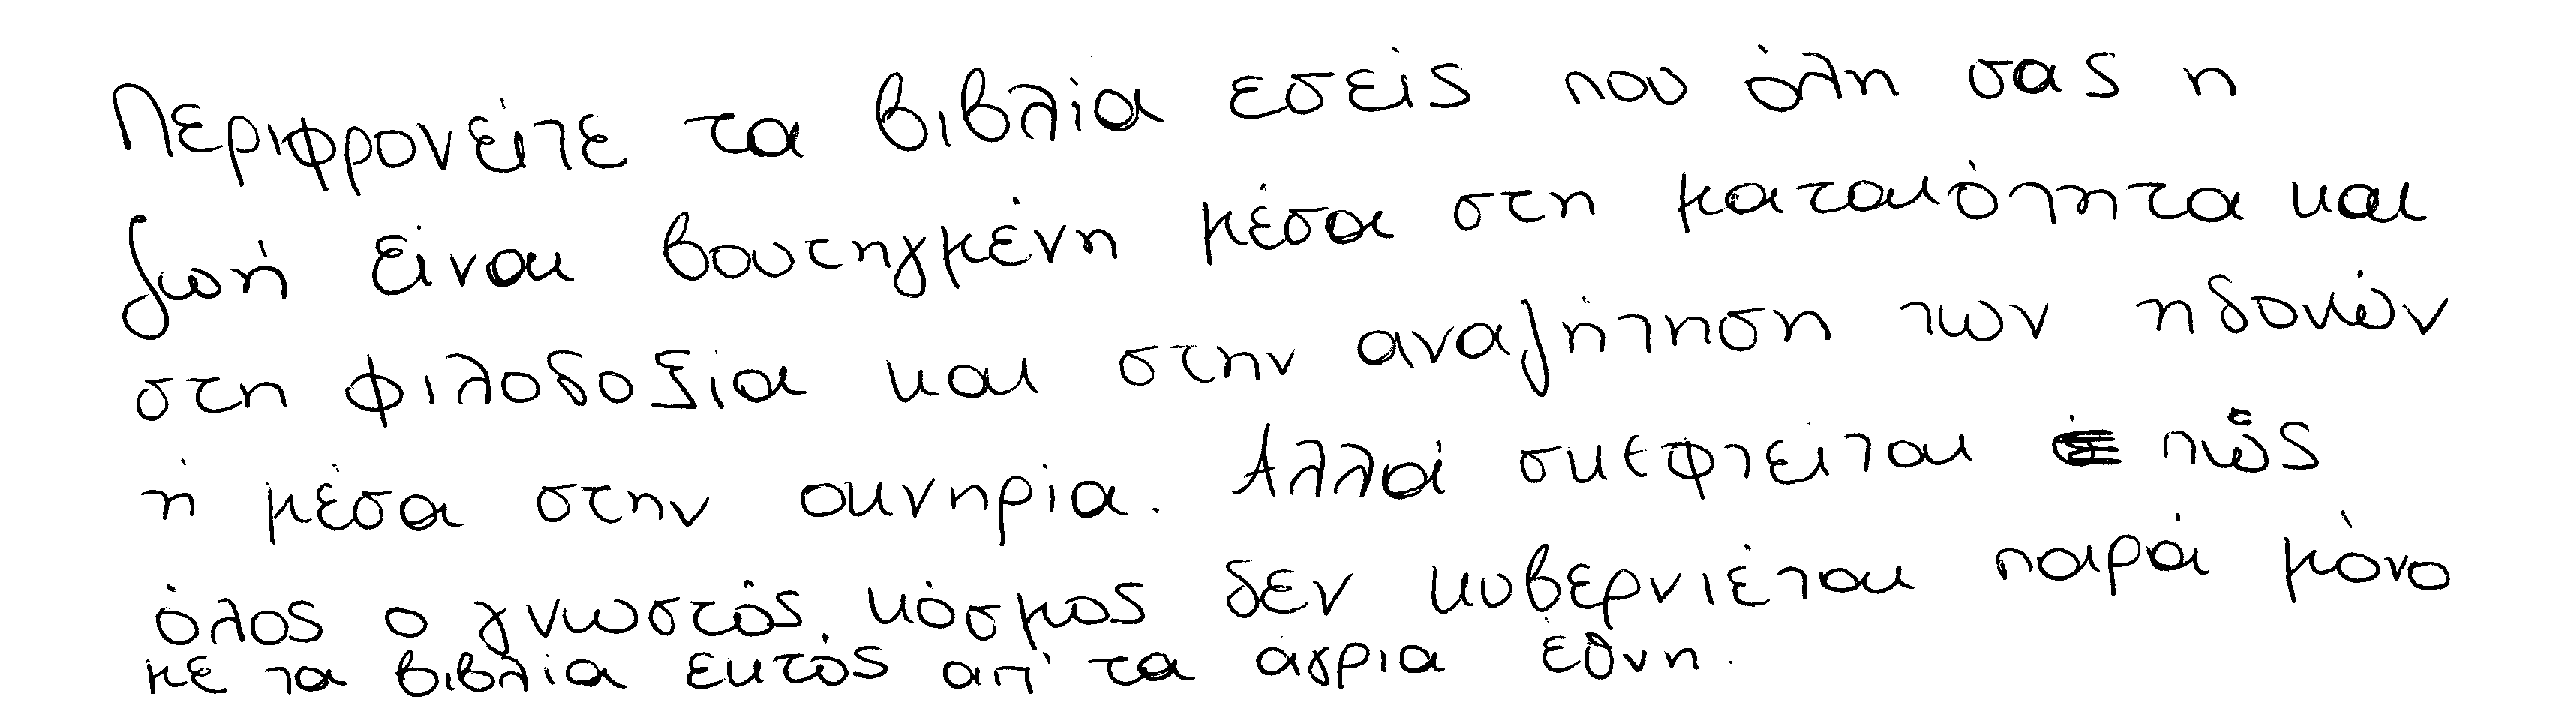 Περιφρονείτε τα βιβλία εσείς που όλη σας η
ζωή είναι βουτηγμένη μέσα στη ματαιότητα και
στη φιλοδοξία και στην αναζήτηση των ηδονών
ή μέσα στην οκνηρία. Αλλά σκεφτείται πώς
όλος ο γνωστός κόσμος δεν κυβερνιέται παρά μόνο
με τα βιβλία εκτός απ' τα άγρια έθνη.